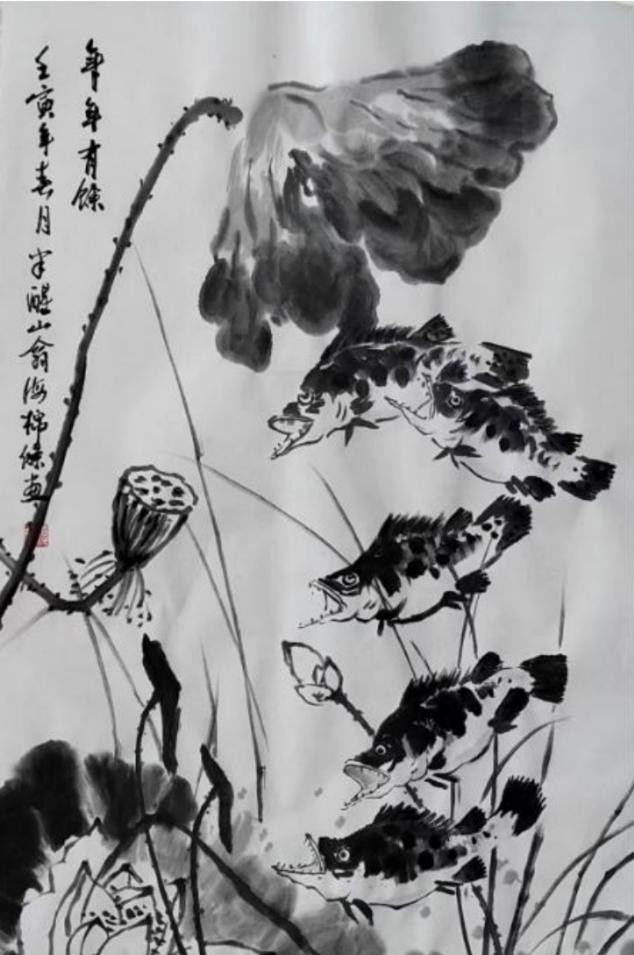 年年有餘
壬寅年春月半醒山翁海棉画